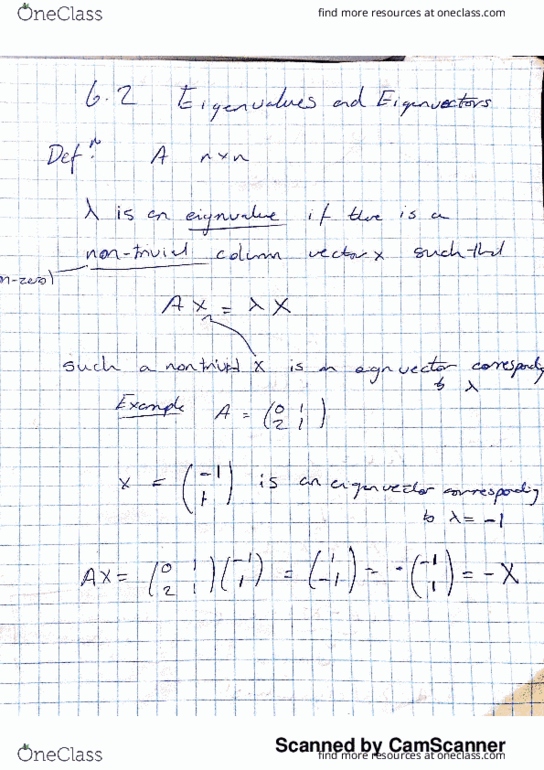 OneClass
find more resources at oneclass.com
6.2 Eigenvalues and Eigenvectors
Defⁿ: A n×n
λ is an eignvalue if there is a
non-trivial column vector x such that
n-zero)
A x = λ X
such a nontrivial x is an eignvector correspondg
to λ
Example A = (0 1
2 1)
x = (-1
1) is an eigenvector corresponding
to λ = -1
AX = (0 1
2 1)(-1
1) = (1
-1) = -(-1
1) = -X
Scanned by CamScanner
OneClass
find more resources at oneclass.com